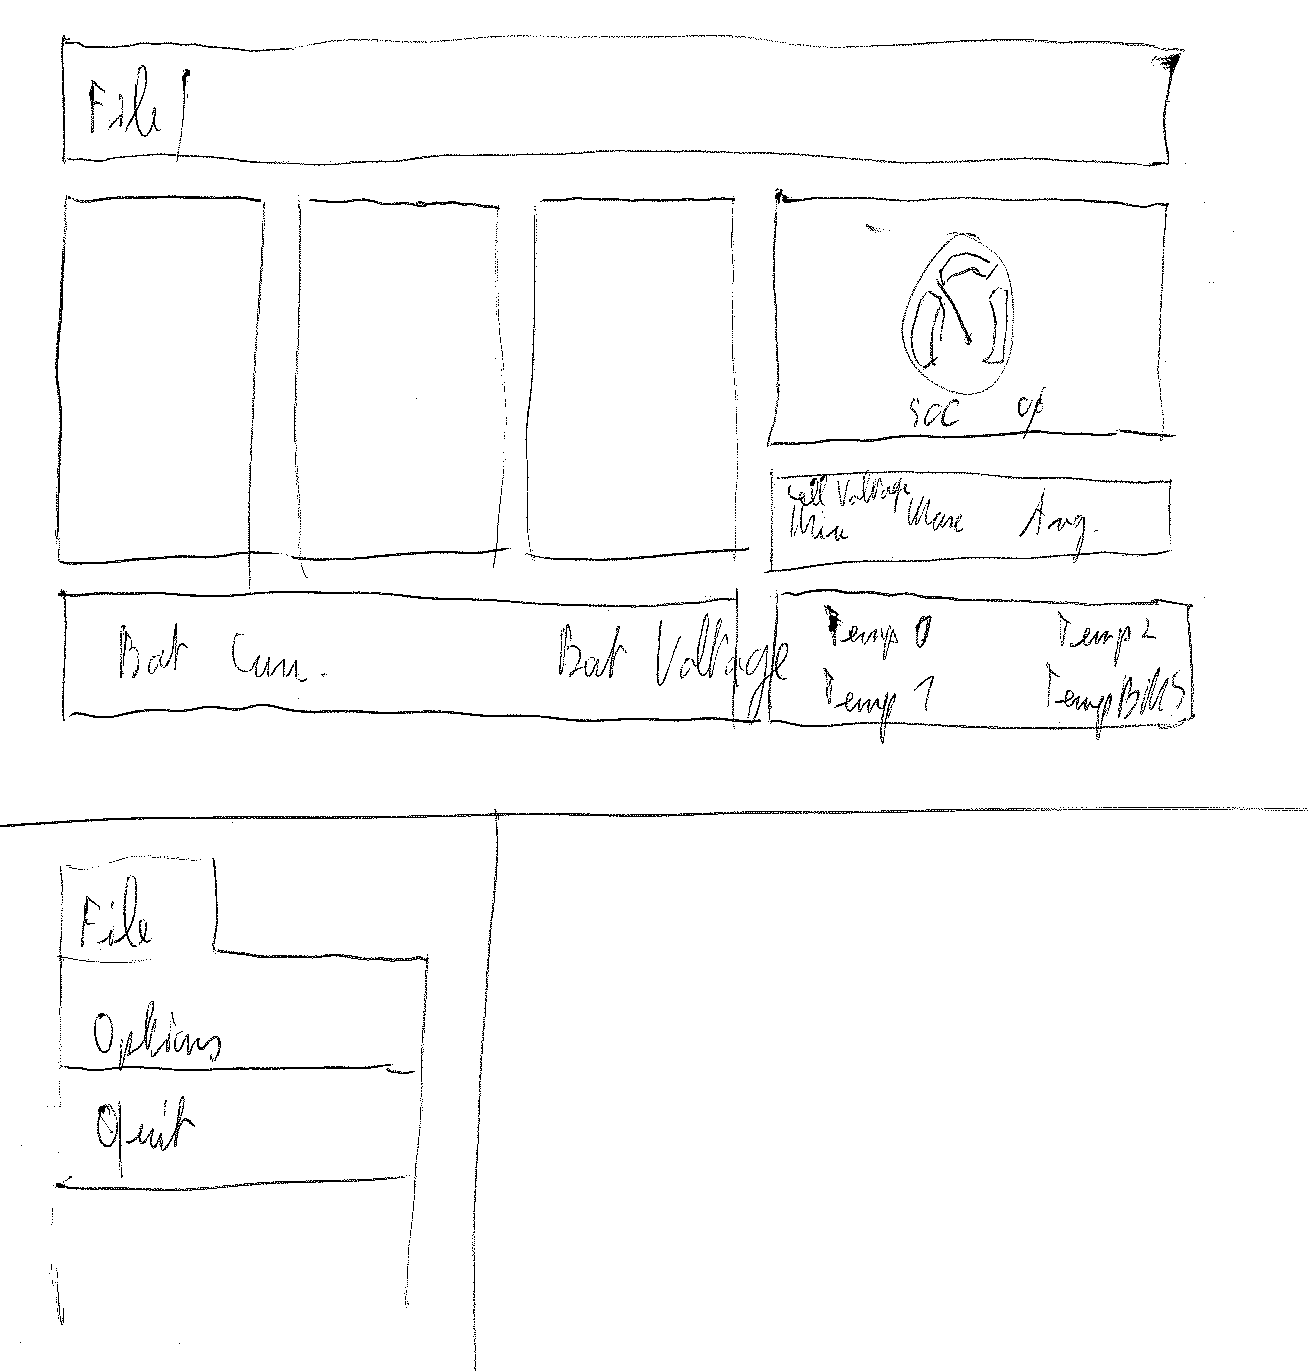 File
SOC %
Cell Voltage
Min Max Avg.
Bat Curr. Bat Voltage
Temp 0 Temp 2
Temp 1 Temp BMS
File
Options
Quit